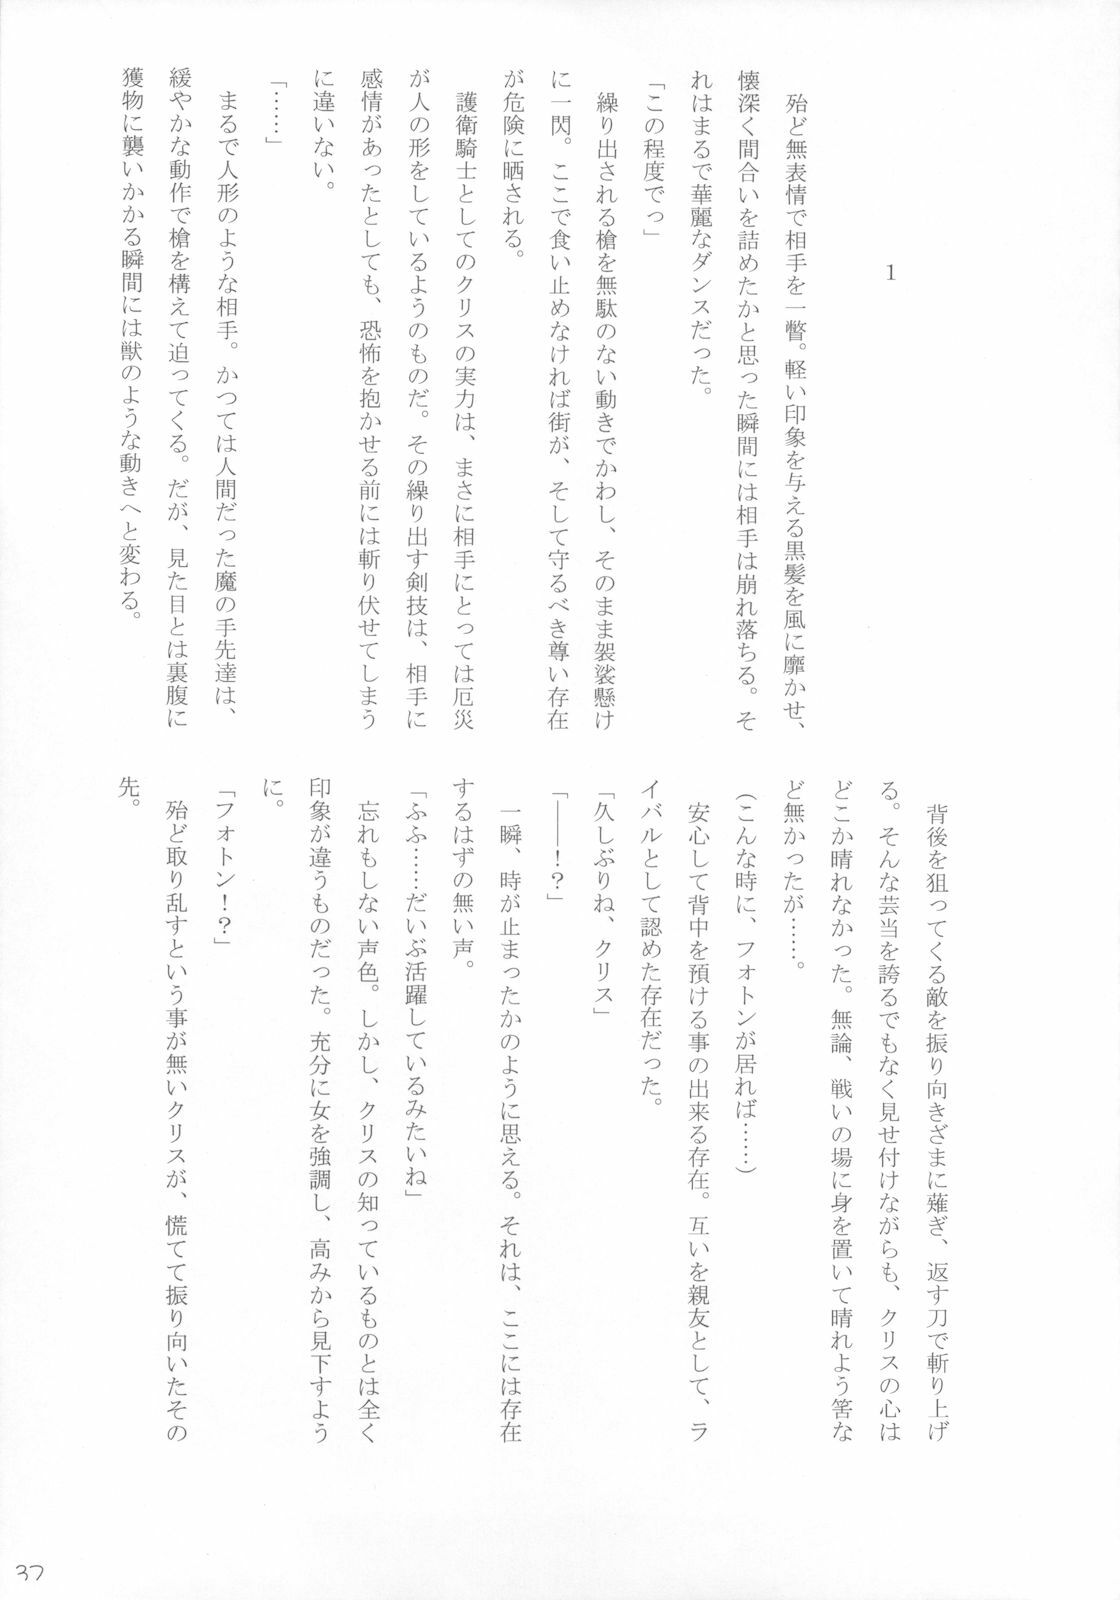 1
　殆ど無表情で相手を一瞥。軽い印象を与える黒髪を風に靡かせ、
懐深く間合いを詰めたかと思った瞬間には相手は崩れ落ちる。そ
れはまるで華麗なダンスだった。
「この程度でっ」
　繰り出される槍を無駄のない動きでかわし、そのまま袈裟懸け
に一閃。ここで食い止めなければ街が、そして守るべき尊い存在
が危険に晒される。
　護衛騎士としてのクリスの実力は、まさに相手にとっては厄災
が人の形をしているようのものだ。その繰り出す剣技は、相手に
感情があったとしても、恐怖を抱かせる前には斬り伏せてしまう
に違いない。
「……」
　まるで人形のような相手。かつては人間だった魔の手先達は、
緩やかな動作で槍を構えて迫ってくる。だが、見た目とは裏腹に
獲物に襲いかかる瞬間には獣のような動きへと変わる。
　背後を狙ってくる敵を振り向きざまに薙ぎ、返す刀で斬り上げ
る。そんな芸当を誇るでもなく見せ付けながらも、クリスの心は
どこか晴れなかった。無論、戦いの場に身を置いて晴れよう筈な
ど無かったが……。
(こんな時に、フォトンが居れば……)
　安心して背中を預ける事の出来る存在。互いを親友として、ラ
イバルとして認めた存在だった。
「久しぶりね、クリス」
「――！？」
　一瞬、時が止まったかのように思える。それは、ここには存在
するはずの無い声。
「ふふ……だいぶ活躍しているみたいね」
　忘れもしない声色。しかし、クリスの知っているものとは全く
印象が違うものだった。充分に女を強調し、高みから見下すよう
に。
「フォトン！？」
　殆ど取り乱すという事が無いクリスが、慌てて振り向いたその
先。
37